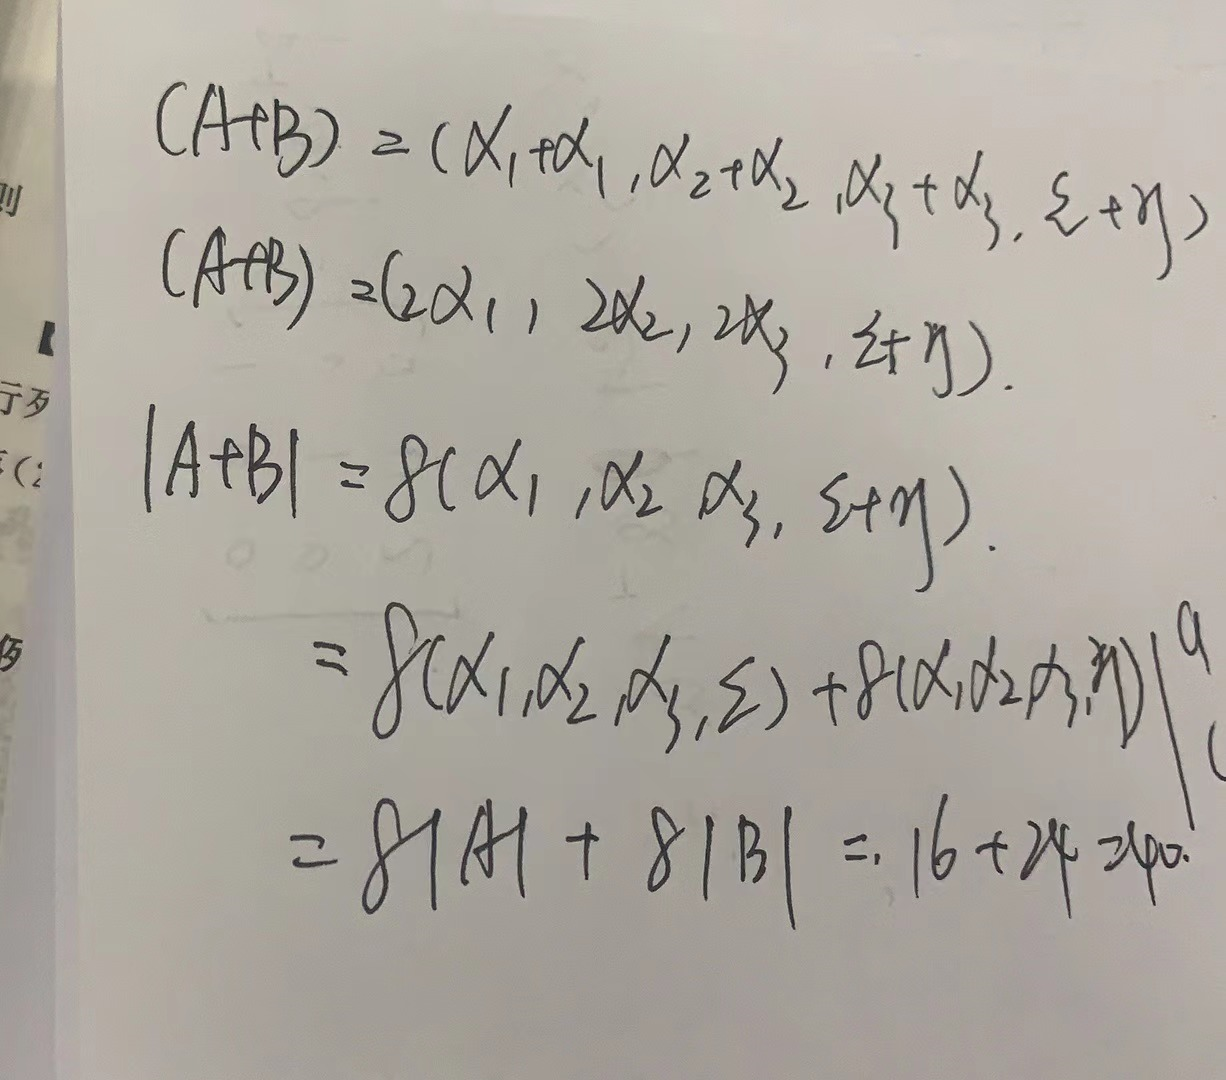 则
(A+B) = (α₁+α₁, α₂+α₂, α₃+α₃, ξ+η)
(A+B) = (2α₁, 2α₂, 2α₃, ξ+η).
行列
|A+B| = 8(α₁, α₂ α₃, ξ+η).
= 8(α₁, α₂, α₃, ξ) + 8(α₁ α₂, α₃, η)
= 8|A| + 8|B| = 16 + 24 = 40.